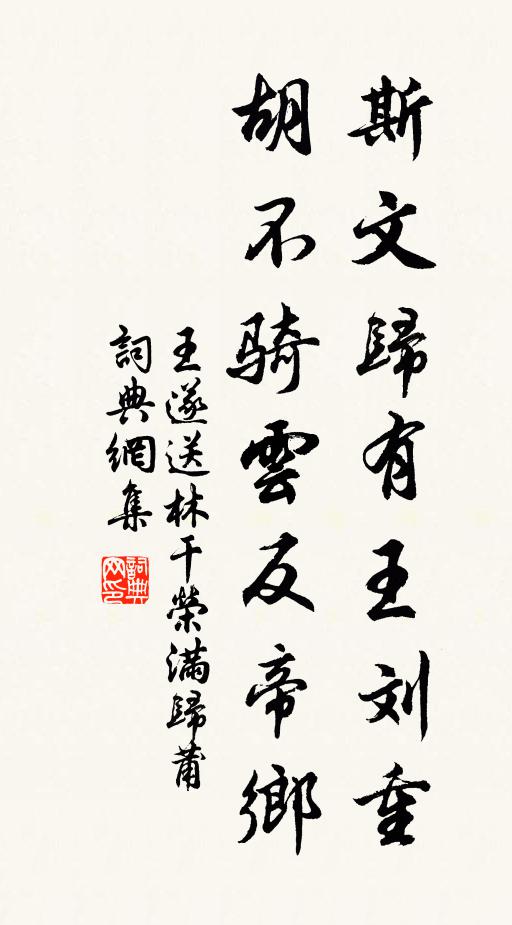 斯文歸有王刘重
胡不骑雲反帝鄉
王遂送林干榮滿歸莆
詞典網集
詞典网印